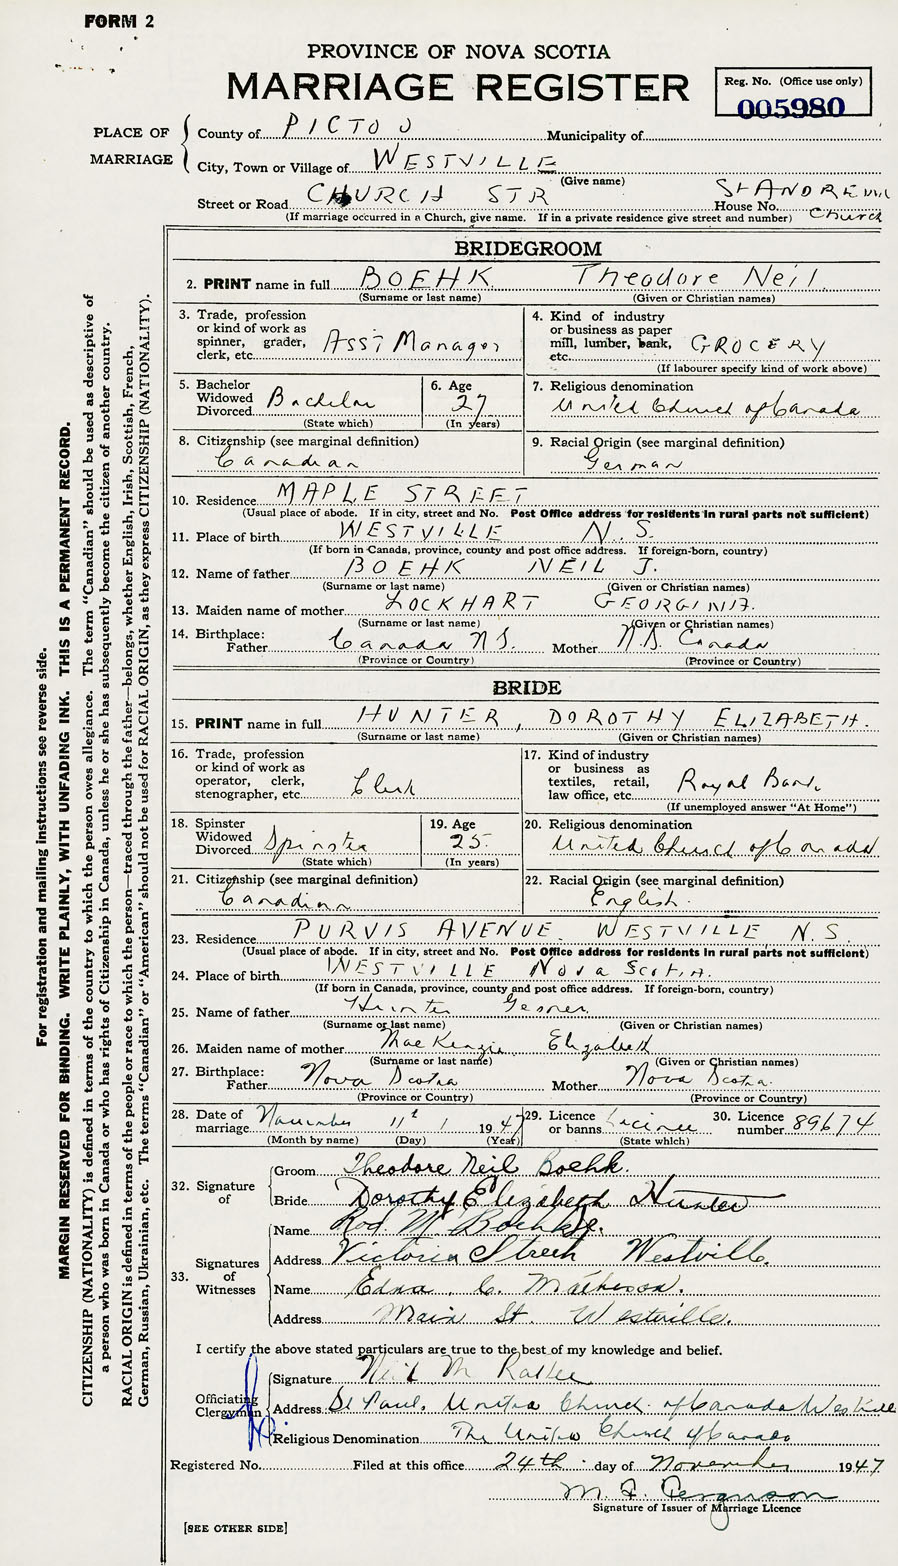 FORM 2
PROVINCE OF NOVA SCOTIA
MARRIAGE REGISTER
Reg. No. (Office use only)
005980
PLACE OF MARRIAGE
County of PICTOU Municipality of
City, Town or Village of WESTVILLE
(Give name)
Street or Road CHURCH STR House No. St ANDREWS Church
(If marriage occurred in a Church, give name. If in a private residence give street and number)
BRIDEGROOM
2. PRINT name in full BOEHK Theodore Neil
(Surname or last name) (Given or Christian names)
3. Trade, profession or kind of work as spinner, grader, clerk, etc. ASST Manager
4. Kind of industry or business as paper mill, lumber, bank, etc. GROCERY
(If labourer specify kind of work above)
5. Bachelor Widowed Divorced Bachelor
(State which)
6. Age 27
(In years)
7. Religious denomination United Church of Canada
8. Citizenship (see marginal definition) Canadian
9. Racial Origin (see marginal definition) German
10. Residence MAPLE STREET
(Usual place of abode. If in city, street and No. Post Office address for residents in rural parts not sufficient)
11. Place of birth WESTVILLE N.S.
(If born in Canada, province, county and post office address. If foreign-born, country)
12. Name of father BOEHK NEIL J.
(Surname or last name) (Given or Christian names)
13. Maiden name of mother LOCKHART GEORGINIA.
(Surname or last name) (Given or Christian names)
14. Birthplace: Father Canada N.S. Mother N.S. Canada
(Province or Country) (Province or Country)
BRIDE
15. PRINT name in full HUNTER, DOROTHY ELIZABETH.
(Surname or last name) (Given or Christian names)
16. Trade, profession or kind of work as operator, clerk, stenographer, etc. Clerk
17. Kind of industry or business as textiles, retail, law office, etc. Royal Bank
(If unemployed answer "At Home")
18. Spinster Widowed Divorced Spinster
(State which)
19. Age 25
(In years)
20. Religious denomination United Church of Canada
21. Citizenship (see marginal definition) Canadian
22. Racial Origin (see marginal definition) English.
23. Residence PURVIS AVENUE. WESTVILLE N.S.
(Usual place of abode. If in city, street and No. Post Office address for residents in rural parts not sufficient)
24. Place of birth WESTVILLE NOVA SCOTIA.
(If born in Canada, province, county and post office address. If foreign-born, country)
25. Name of father Hunter Gesner
(Surname or last name) (Given or Christian names)
26. Maiden name of mother MacKenzie Elizabeth
(Surname or last name) (Given or Christian names)
27. Birthplace: Father Nova Scotia Mother Nova Scotia.
(Province or Country) (Province or Country)
28. Date of marriage November 11t 1947
(Month by name) (Day) (Year)
29. Licence or banns Licence
(State which)
30. Licence number 89674
32. Signature of
Groom Theodore Neil Boehk.
Bride Dorothy Elizabeth Hunter
33. Signatures of Witnesses
Name Rod. M. Boehk
Address Victoria Street Westville.
Name Edna C. Matheson.
Address Main St. Westville.
I certify the above stated particulars are true to the best of my knowledge and belief.
Officiating Clergyman
Signature Neil M
Address St Paul, United Church of Canada Westville
Religious Denomination The United Church of Canada
Registered No. Filed at this office 24th day of November 1947
M. F. Ferguson
Signature of Issuer of Marriage Licence
[SEE OTHER SIDE]
For registration and mailing instructions see reverse side.
MARGIN RESERVED FOR BINDING. WRITE PLAINLY, WITH UNFADING INK. THIS IS A PERMANENT RECORD.
CITIZENSHIP (NATIONALITY) is defined in terms of the country to which the person owes allegiance. The term "Canadian" should be used as descriptive of
a person who was born in Canada or who has rights of Citizenship in Canada, unless he or she has subsequently become the citizen of another country.
RACIAL ORIGIN is defined in terms of the people or race to which the person—traced through the father—belongs, whether English, Irish, Scottish, French,
German, Russian, Ukrainian, etc. The terms "Canadian" or "American" should not be used for RACIAL ORIGIN, as they express CITIZENSHIP (NATIONALITY).